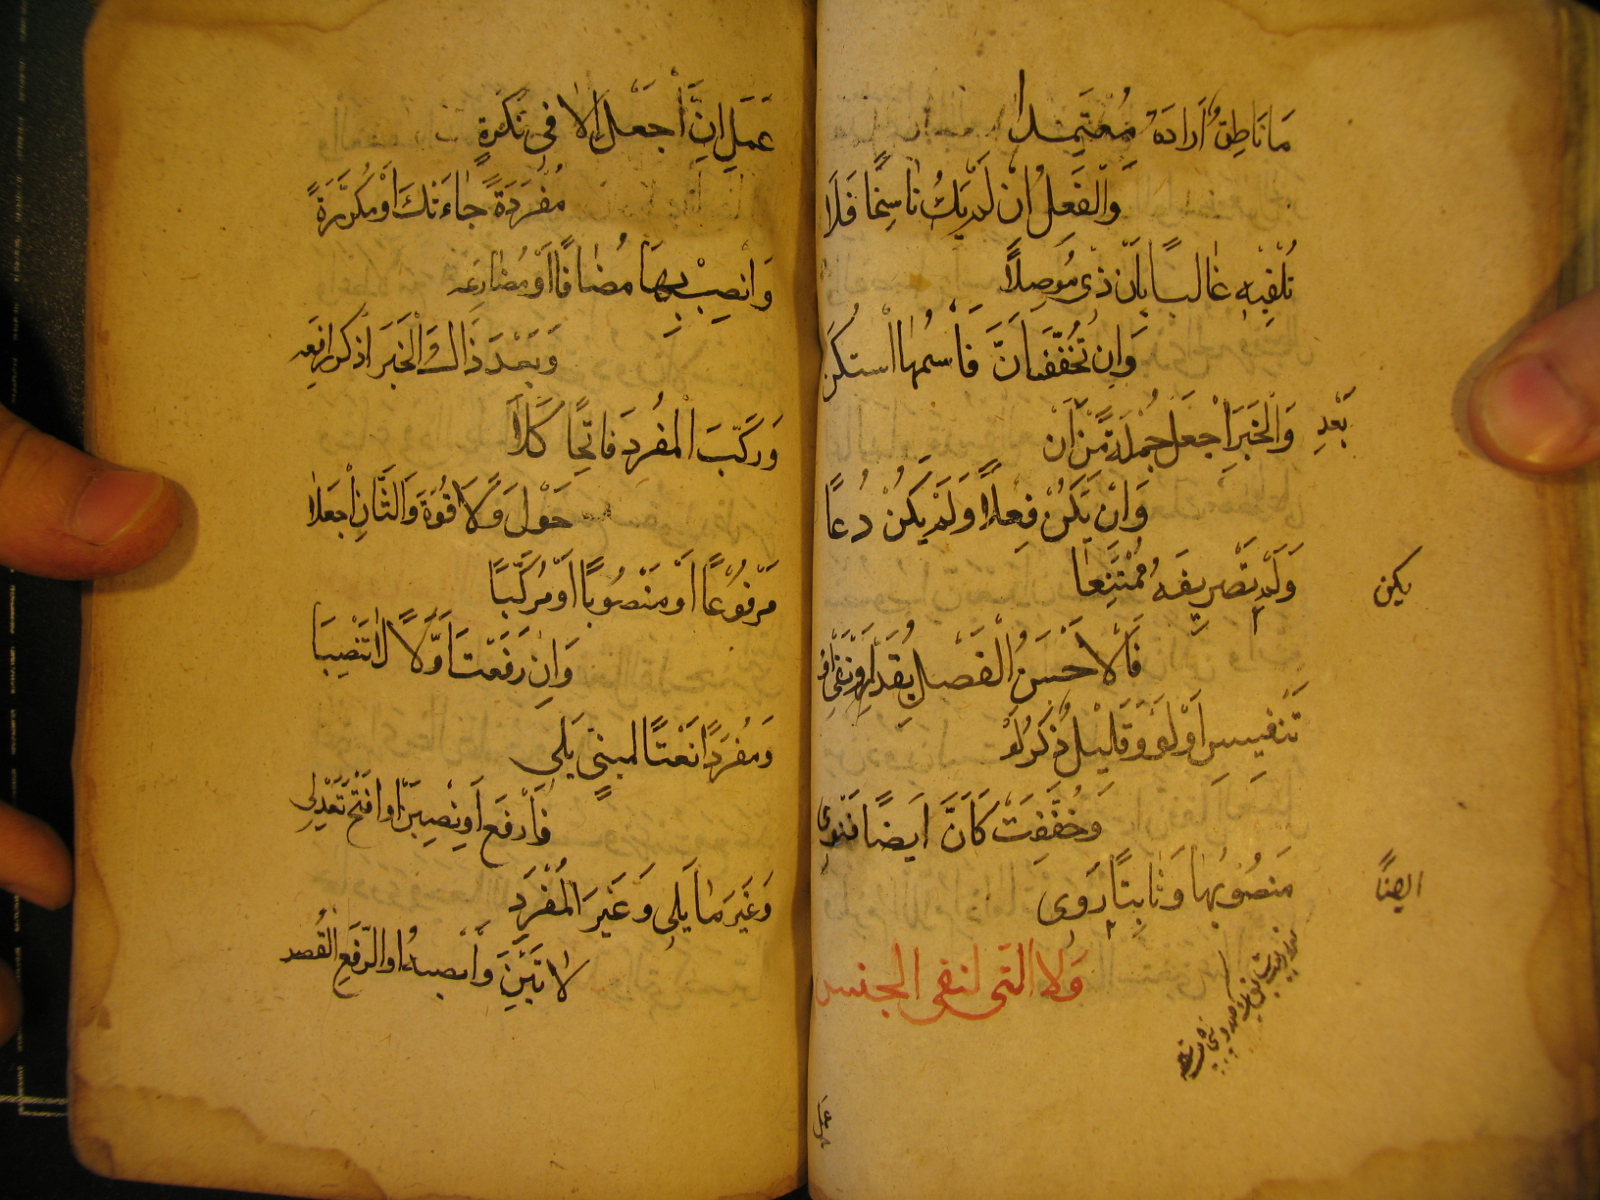 مَا نَاطِقٌ اَرَادَهُ مُعْتَمِدا
وَالْفِعْلُ اِنْ لَمْ يَكُ نَاسِخًا فَلَا
تُلْفِيهِ غَالبًا بِاِن ذِى مُوصِلًا
وَاِن تُخَفَّف اَنَّ فَاسْمُهَا اسْتكَنّ
وَالْخَبَرَ اجعَل جُملَةً مِنْ بَعْدِ اَنْ
وَاِنْ يَكُنْ فِعلًا وَلَمْ يَكُنْ دُعًا
وَلَمْ يكن تَصْرِيفَهُ مُمْتَنِعَا
فَالْاَحْسَنُ الْفَصْل بِقَدْ اَوْ نَفْىٍ اَوْ
تَنفِيسٍ اَوْ لَوْ وَقَلِيلٌ ذُكِرَ لَوْ
وَخُفِّفَتْ كَاَنَّ اَيضًا فَنُوِى
مَنصُوبُهَا وَثَابِتًا ايضًا رُوِى
وَلا الّتى لنفى الجنس
عَمَلَ اِنَّ اجعَل لِلَا فِى نَكِرَةٍ
مُفْرَدَةً جَاءَتْكَ اَوْ مُكَرَّرَةً
وَانصِبْ بِهَا مُضَافًا اَوْ مُضَارِعَه
وَبَعْدَ ذَاكَ الْخَبَرَ اذكُر رَافِعَه
وَرَكِّبَ الْمُفرَدَ فَاتِحًا كَلَا
حَوْلَ وَلَا قُوَّةَ وَالثَّانِ اجعَلَا
مَرْفُوعًا اَوْ مَنْصُوبًا اَوْ مُرَكَّبًا
وَاِن رَفَعْتَ اَوَّلًا لَا تَنْصِبَا
وَمُفرَدًا نَعْتًا لمبنىٍّ يَلِى
فَاَرفَع اَوِ نصِبَنْ اَوِ افتَح تَعْدِلِ
وَغَيرَ مَا يَلِى وَغَيرَ الْمُفْرَدِ
لا تَبْنِ وَانْصِبهُ اَوِ الرَّفعَ اقْصد